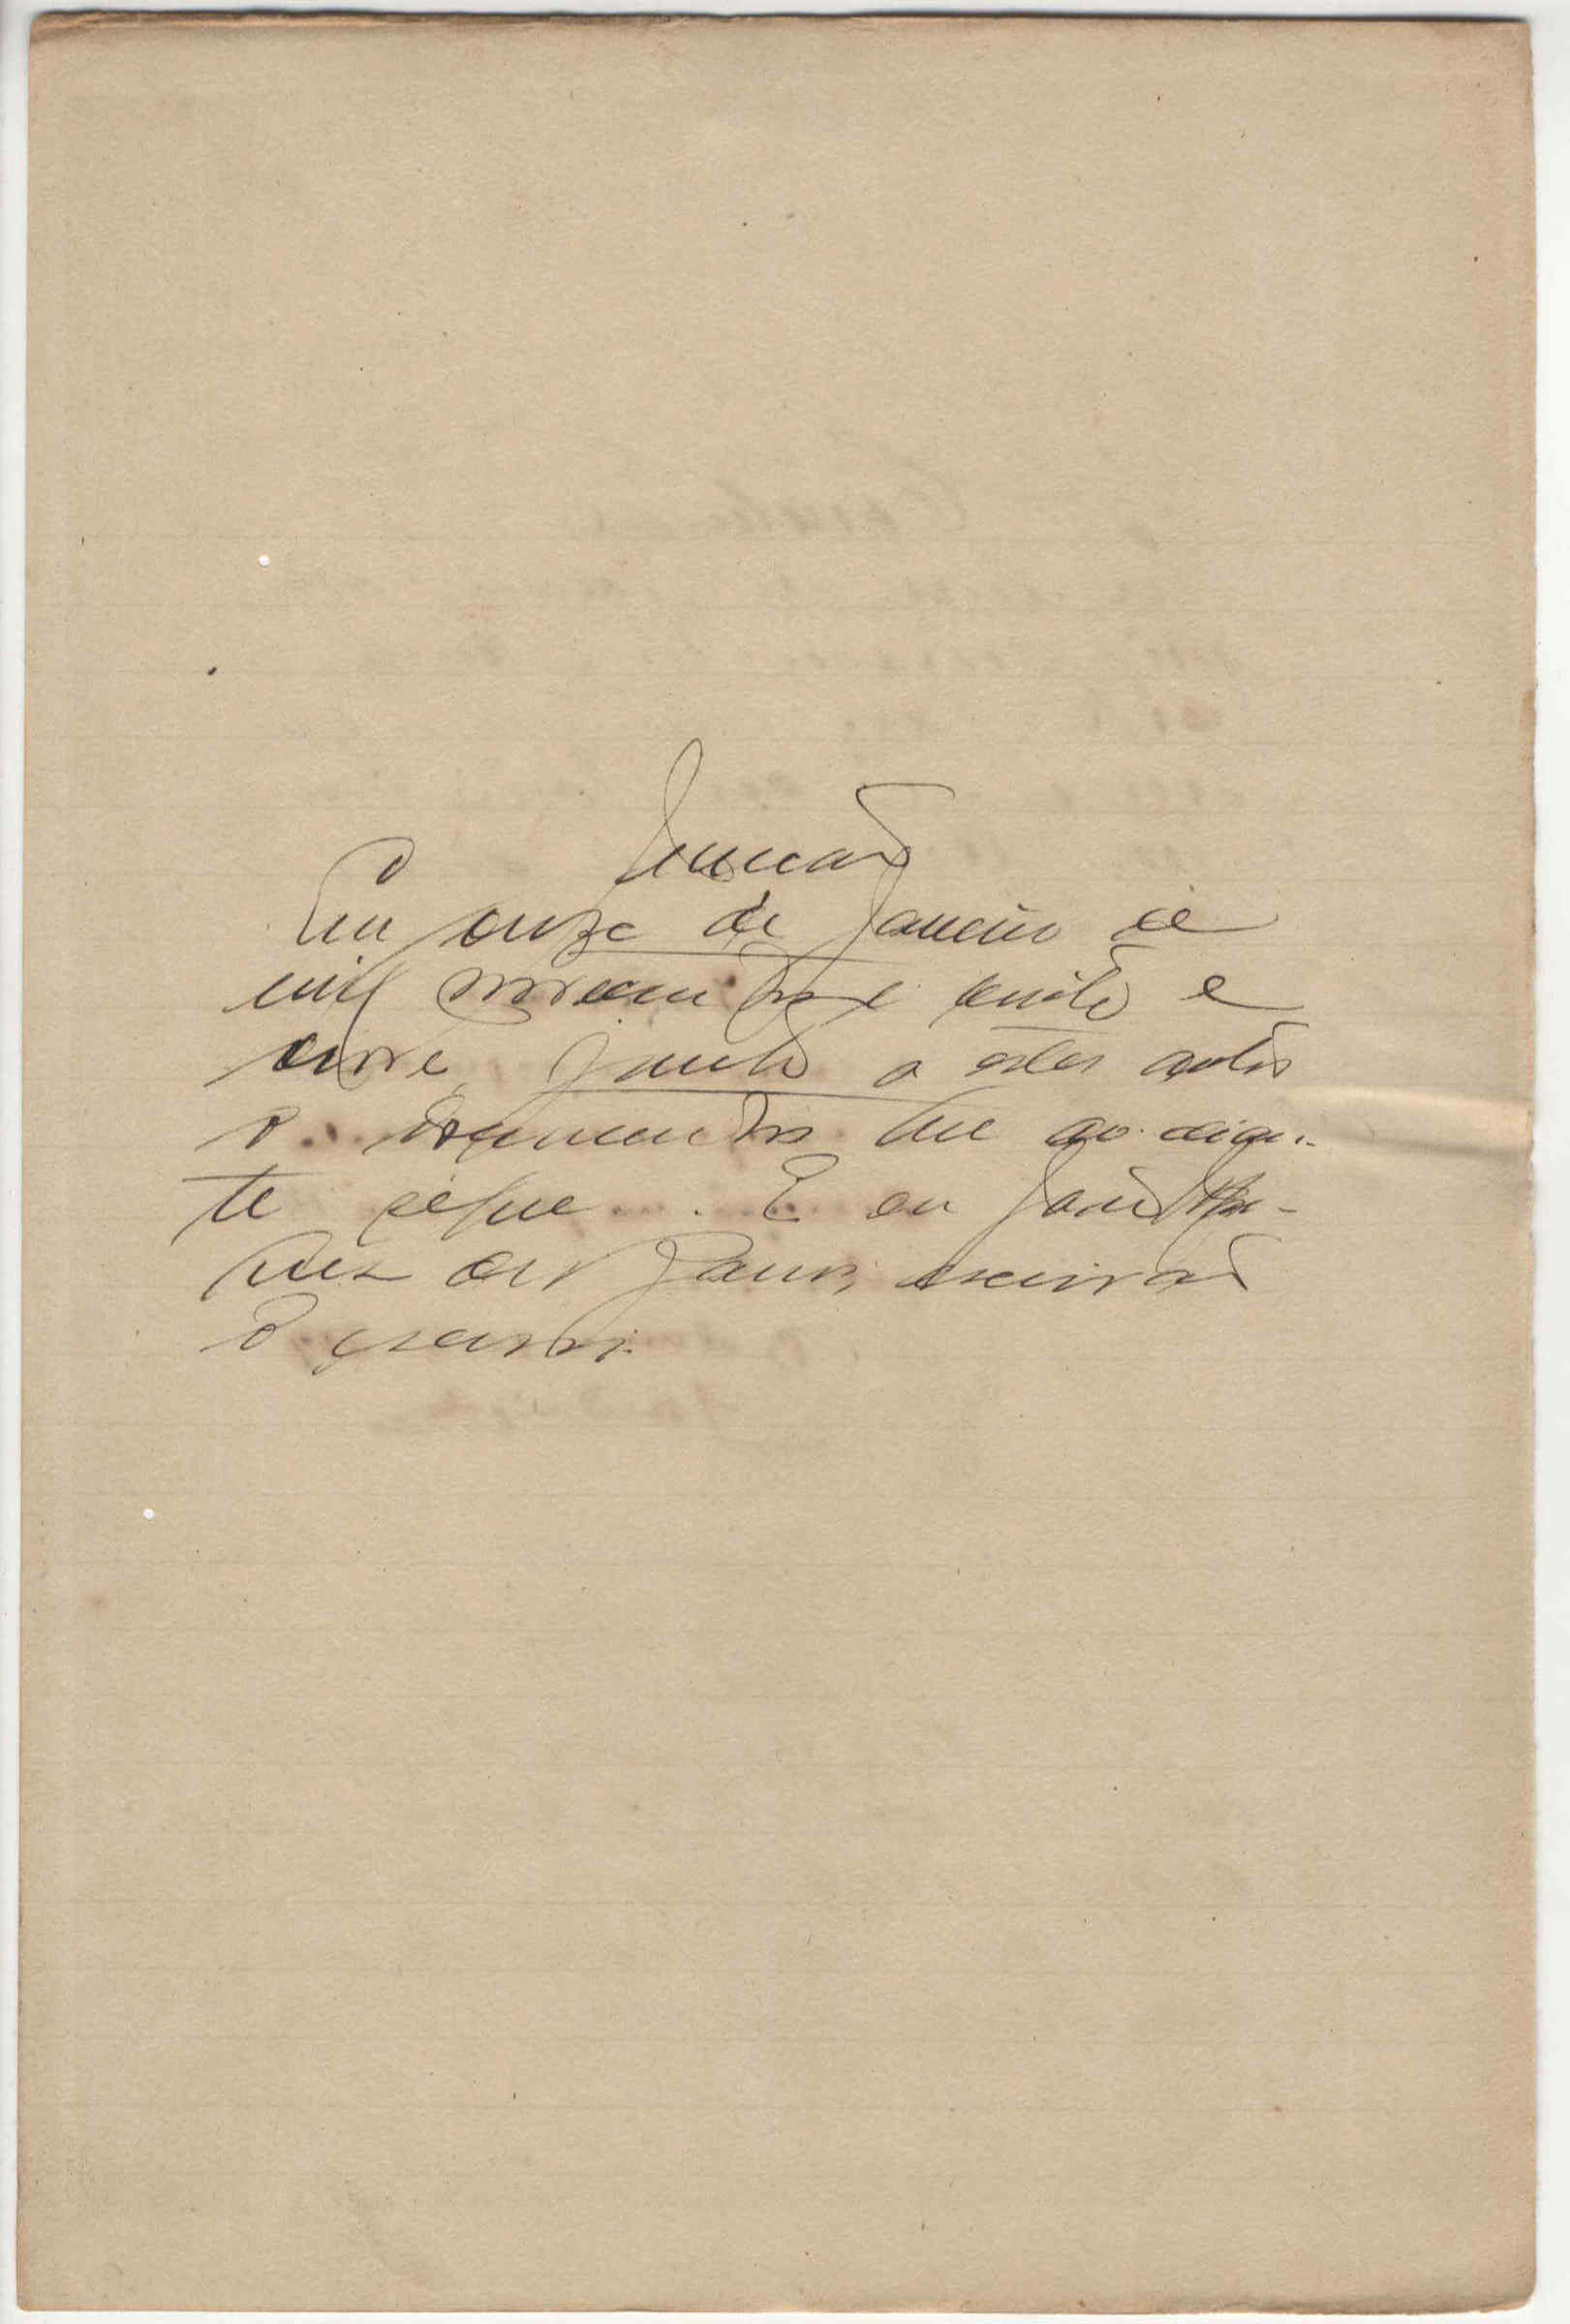 Juntada
Em onze de Janeiro de
mil novecentos e vinte e
nove, junto a estes autos
o documento que ao dian-
te segue. E eu
dos Santos, escrivão
o escrevi.